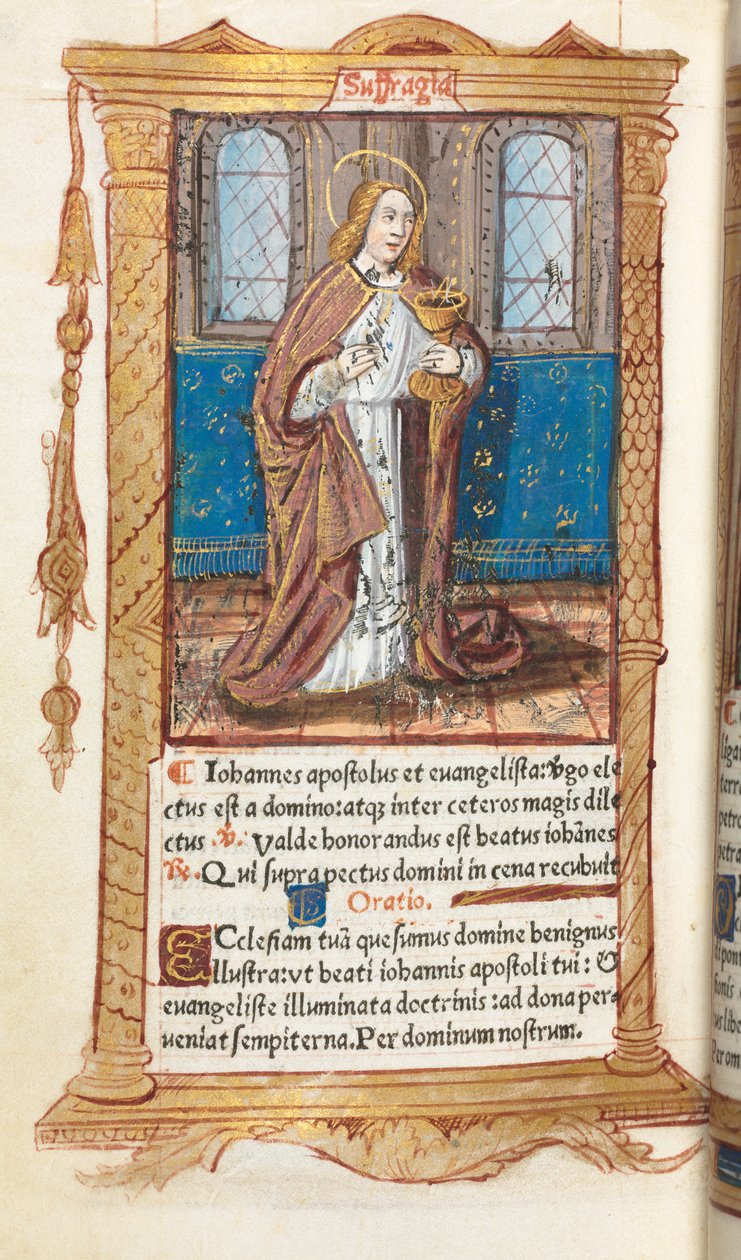 Suffragia
¶ Iohannes apostolus et euangelista: v̈go ele
ctus est a domino: atqꝫ inter ceteros magis dile
ctus ℣. Valde honorandus est beatus iohānes
℟. Qui supra pectus domini in cena recubuit
Oratio.
ECclesiam tuā quesumus domine benignus
illustra: vt beati iohannis apostoli tui: &
euangeliste illuminata doctrinis: ad dona per-
ueniat sempiterna. Per dominum nostrum.
petra